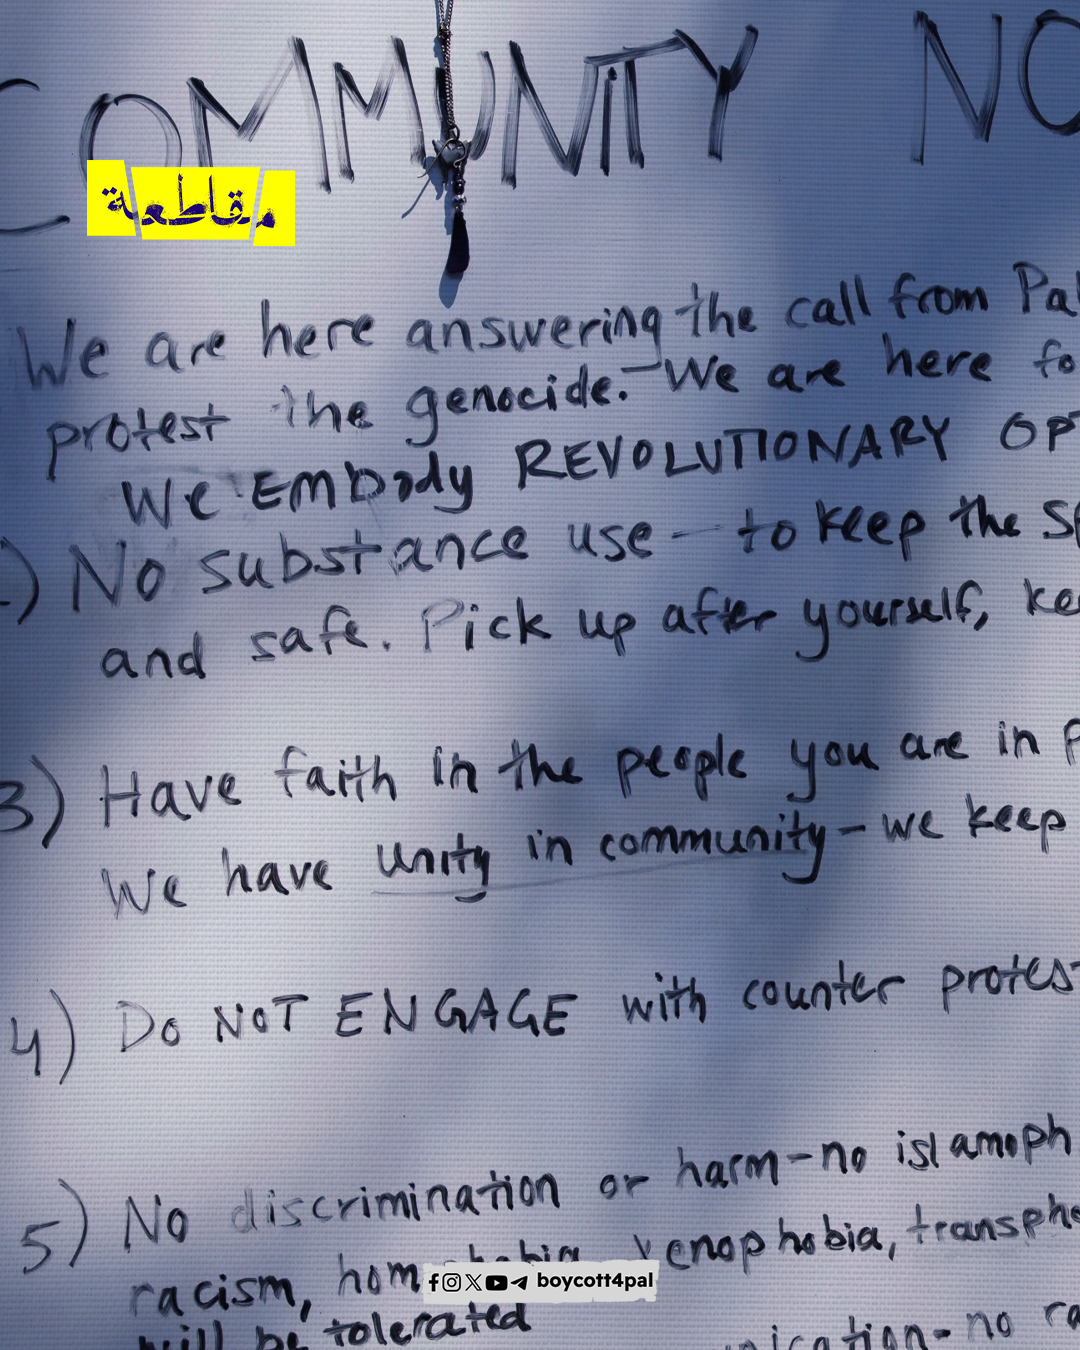 COMMUNITY NO
مقاطعة
We are here answering the call from Pal
protest the genocide. We are here fo
WE EMBODY REVOLUTIONARY OPT
.) No substance use - to keep the sp
and safe. Pick up after yourself, kee
3) Have faith in the people you are in p
We have unity in community - we keep
4) DO NOT ENGAGE with counter protest
5) No discrimination or harm - no islamoph
racism, hom phobia, xenophobia, transpho
will be tolerated
nication - no ra
boycott4pal